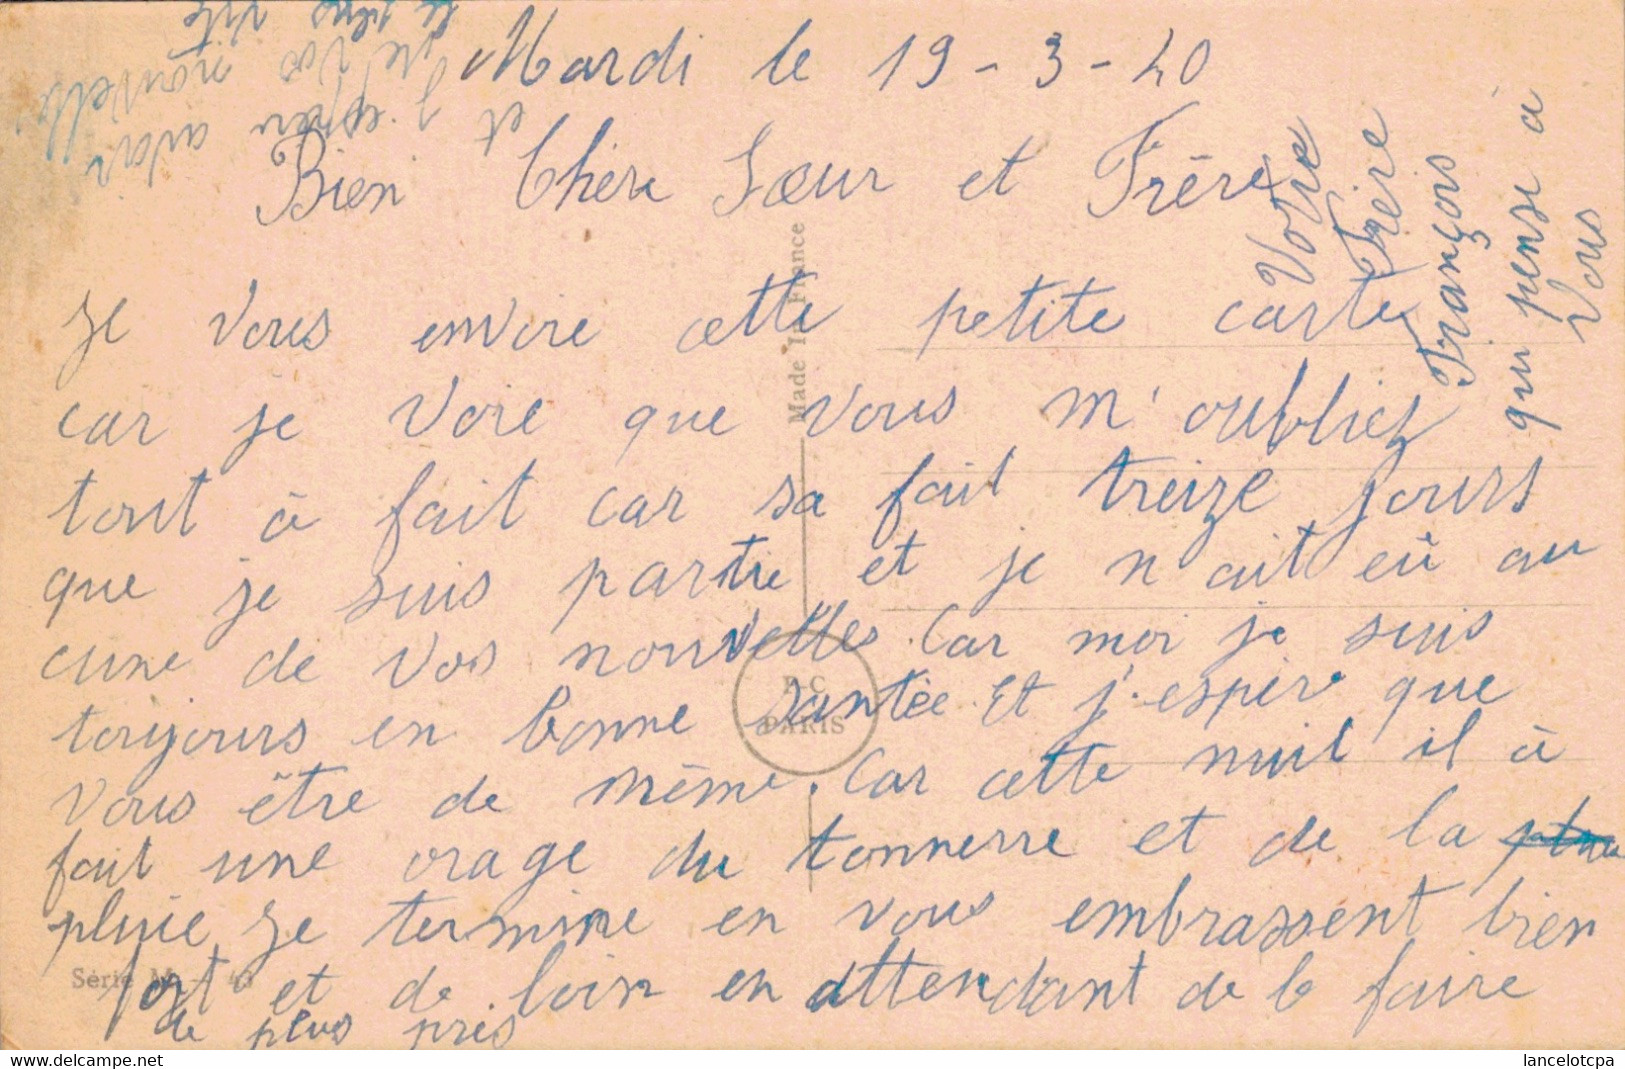 Mardi le 19-3-40
Bien Chère Sœur et Frère
Je vous envoie cette petite carte
car je voie que vous m'oubliez
tout à fait car sa fait treize jours
que je suis partie et je n ait eû au
cune de vos nouvelles. Car moi je suis
toujours en bonne santèe. Et j'espère que
vous être de même. Car cette nuit il à
fait une orage du tonnerre et de la
pluie. Je termine en vous embrassent bien
fort et de loin en attendant de le faire
de plus près
et j'espère avoir
de vos nouvelle
le plus vite
Votre
Frère
François
qui pense a
Vous
Made In France
P.C
PARIS
Série M - 43
lancelotcpa